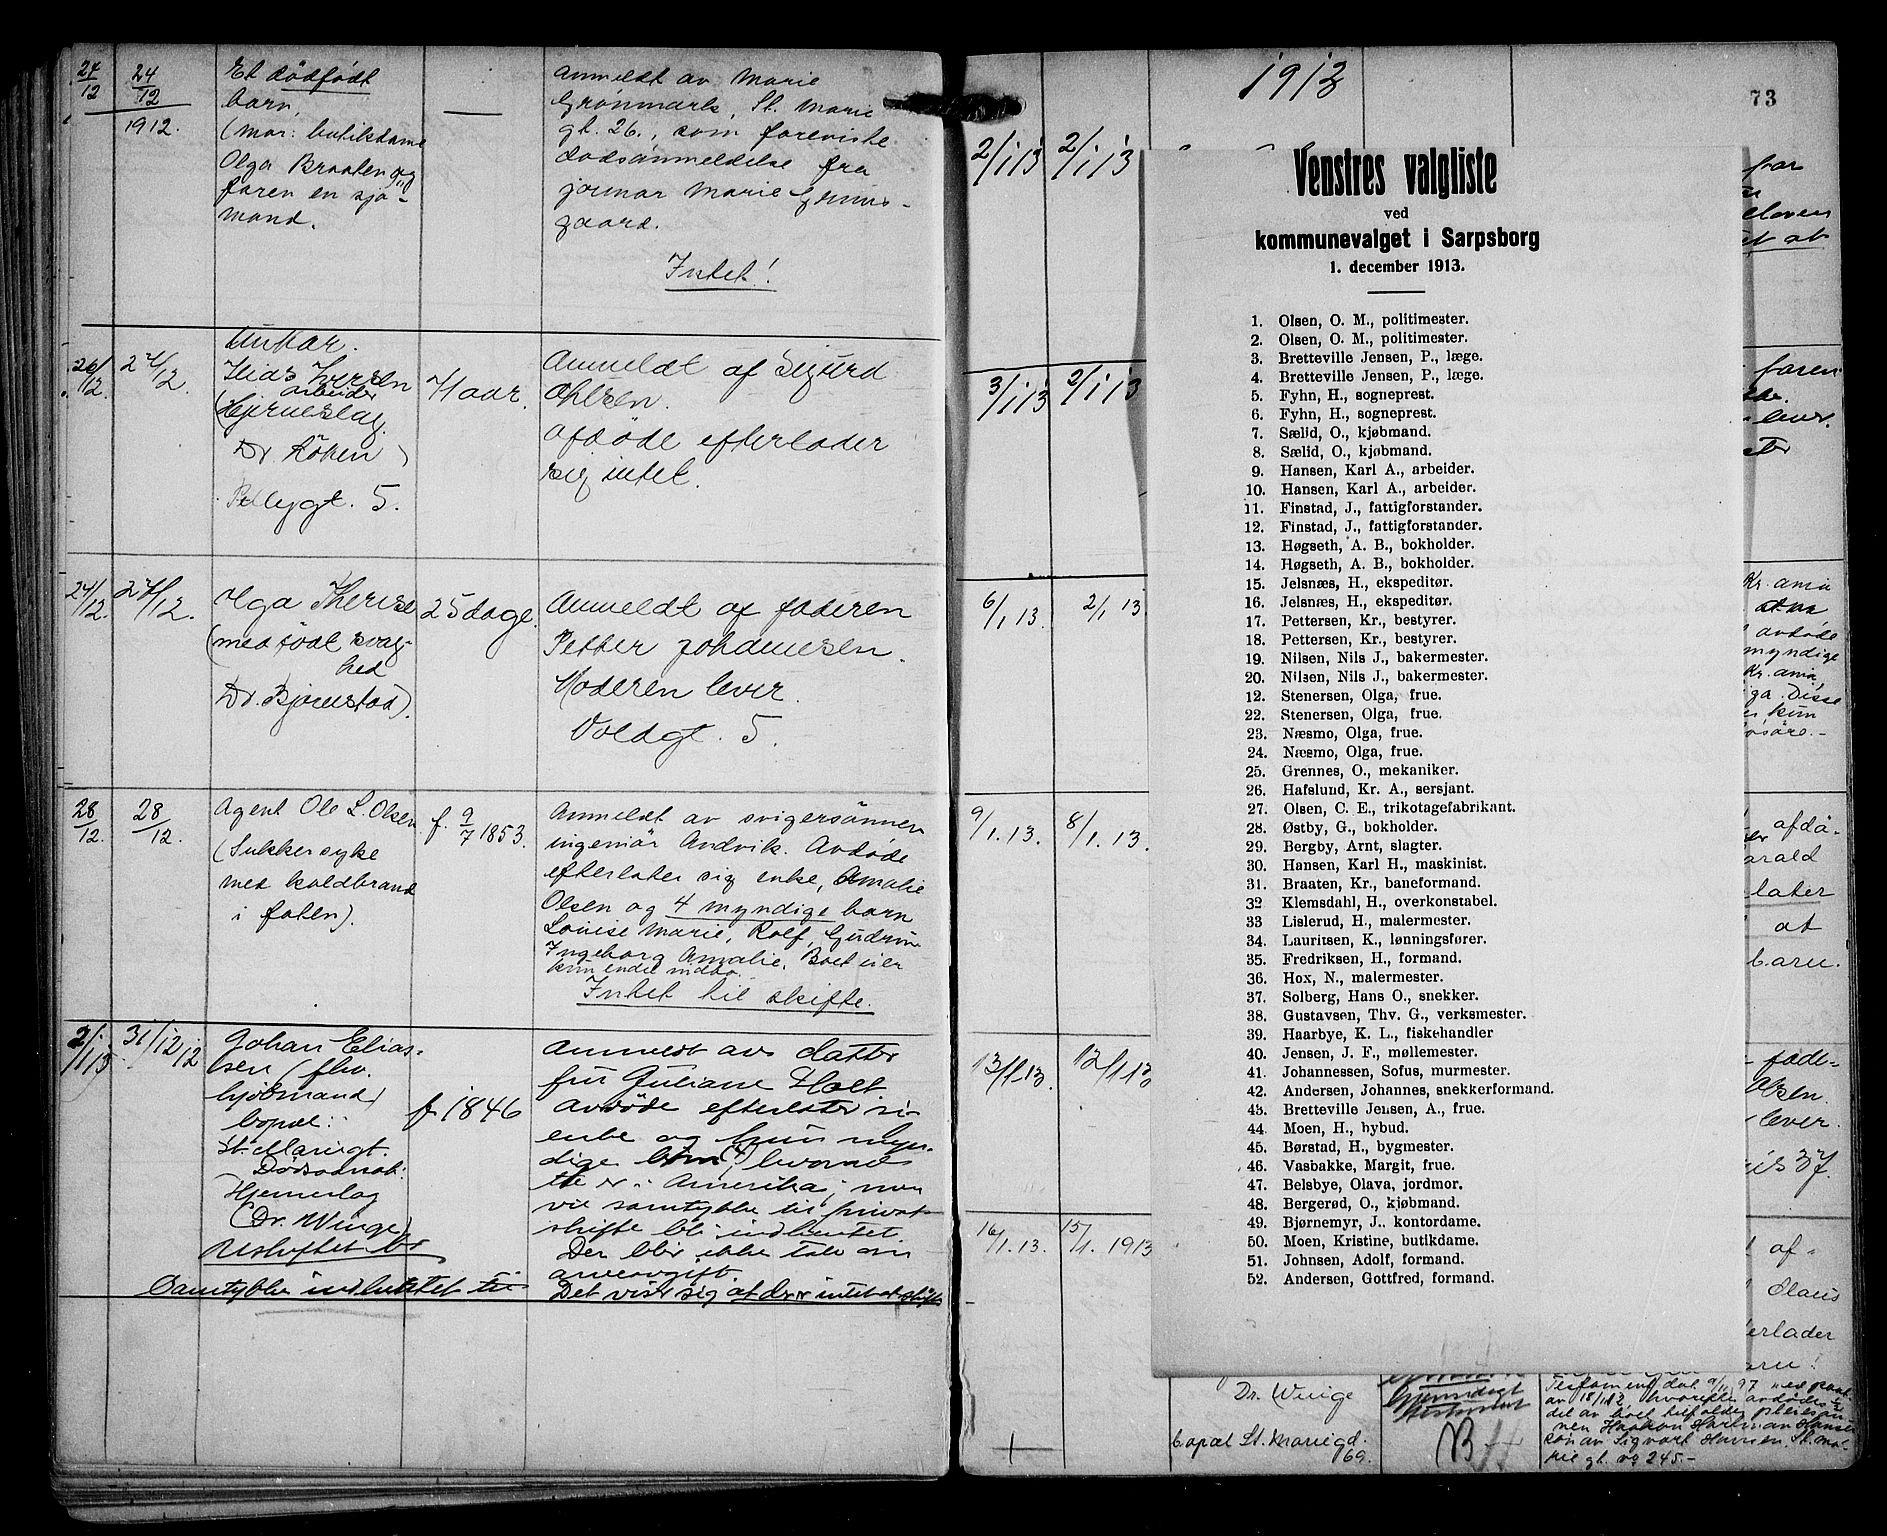 24/12
24/12
1912.
Et dødfødt
barn,
(mor: butiksdame
Olga Braaten og
faren en sjø-
mand.
Anmeldt av Marie
Grønmark, St. Marie
gt. 26., som foreviste
dødsanmeldelse fra
jormor Marie
gaard.
Intet!
26/12.
24/12.
arbeider
(Hjerneslag.
Dr.
gt. 5.
71 aar.
Anmeldt af Sigurd
Ohlsen.
Afdøde efterlader
sig intet.
24/12.
24/12.
Olga Therese
(medfødt svag-
hed
Dr. Bjørnstad).
25 dage.
Anmeldt af faderen
Petter Johannesen.
Moderen lever.
Voldgt. 5.
28/12.
28/12.
Agent Ole L. Olsen
(Sukkersyke
med koldbrand
i foten).
f. 9/7 1853.
Anmeldt av svigersønnen
ingeniør Andvik. Avdøde
efterlater sig enke, Amalie
Olsen og 4 myndige barn
Louise Marie, Rolf, Gudrun
Ingeborg Amalie. Boet eier
kun endel indbo.
Intet til skifte.
2/1 13
31/12 12
Johan Elias-
sen (fhv.
kjøbmand)
bopæl:
St. Mariegt.
Dødsaarsak:
Hjerneslag
(Dr. Winge)
Uskiftet bo
Samtykke indhentet
f. 1846
Anmeldt av datter
fru Juliane Holt
Avdøde efterlater si-
enke og kun myn-
dige barn (4) hvorav
er i Amerika; man
vil samtykke til privat
skifte bli indhentet.
Der blir ikke tale om
arveavgift.
Det viser sig at der er intet at skifte
1913
73
2/1 13
2/1 13
3/1 13
2/1 13
6/1 13.
2/1 13
9/1. 13.
8/1. 13.
13/1 13.
12/1 13
16/1. 13.
15/1. 1913
Venstres valgliste
ved
kommunevalget i Sarpsborg
1. december 1913.
1. Olsen, O. M., politimester.
2. Olsen, O. M., politimester.
3. Bretteville Jensen, P., læge.
4. Bretteville Jensen, P., læge.
5. Fyhn, H., sogneprest.
6. Fyhn, H., sogneprest.
7. Sælid, O., kjøbmand.
8. Sælid, O., kjøbmand.
9. Hansen, Karl A., arbeider.
10. Hansen, Karl A., arbeider.
11. Finstad, J., fattigforstander.
12. Finstad, J., fattigforstander.
13. Høgseth, A. B., bokholder.
14. Høgseth, A. B., bokholder.
15. Jelsnæs, H., ekspeditør.
16. Jelsnæs, H., ekspeditør.
17. Pettersen, Kr., bestyrer.
18. Pettersen, Kr., bestyrer.
19. Nilsen, Nils J., bakermester.
20. Nilsen, Nils J., bakermester.
12. Stenersen, Olga, frue.
22. Stenersen, Olga, frue.
23. Næsmo, Olga, frue.
24. Næsmo, Olga, frue.
25. Grennes, O., mekaniker.
26. Hafslund, Kr. A., sersjant.
27. Olsen, C. E., trikotagefabrikant.
28. Østby, G., bokholder.
29. Bergby, Arnt, slagter.
30. Hansen, Karl H., maskinist.
31. Braaten, Kr., baneformand.
32 Klemsdahl, H., overkonstabel.
33 Lislerud, H., malermester.
34. Lauritsen, K., lønningsfører.
35. Fredriksen, H., formand.
36. Hox, N., malermester.
37. Solberg, Hans O., snekker.
38. Gustavsen, Thv. G., verksmester.
39. Haarbye, K. L., fiskehandler
40. Jensen, J. F., møllemester.
41. Johannessen, Sofus, murmester.
42. Andersen, Johannes, snekkerformand.
43. Bretteville Jensen, A., frue.
44. Moen, H., bybud.
45. Børstad, H., bygmester.
46. Vasbakke, Margit, frue.
47. Belsbye, Olava, jordmor.
48. Bergerød, O., kjøbmand.
49. Bjørnemyr, J.. kontordame.
50. Moen, Kristine, butikdame.
51. Johnsen, Adolf, formand.
52. Andersen, Gottfred, formand.
far
loven
at
faren
lever.
Kr. ania
avdøde
myndige
Kr. ania,
Disse
kun
afdø-
arald
later
at
barn.
fade-
Olsen.
lever.
37.
af-
Olaus
erlader
Dr. Winge
bopæl St. Mariegd.
69.
Testament dat. 9/11 97 med
av 18/1 12 hvorefter avdødes
del av boet tilfalder pleiesøn-
nen Haakon Hartman Hansen
søn av Sigvart Hansen, St. Ma-
rie gt. no 245.-